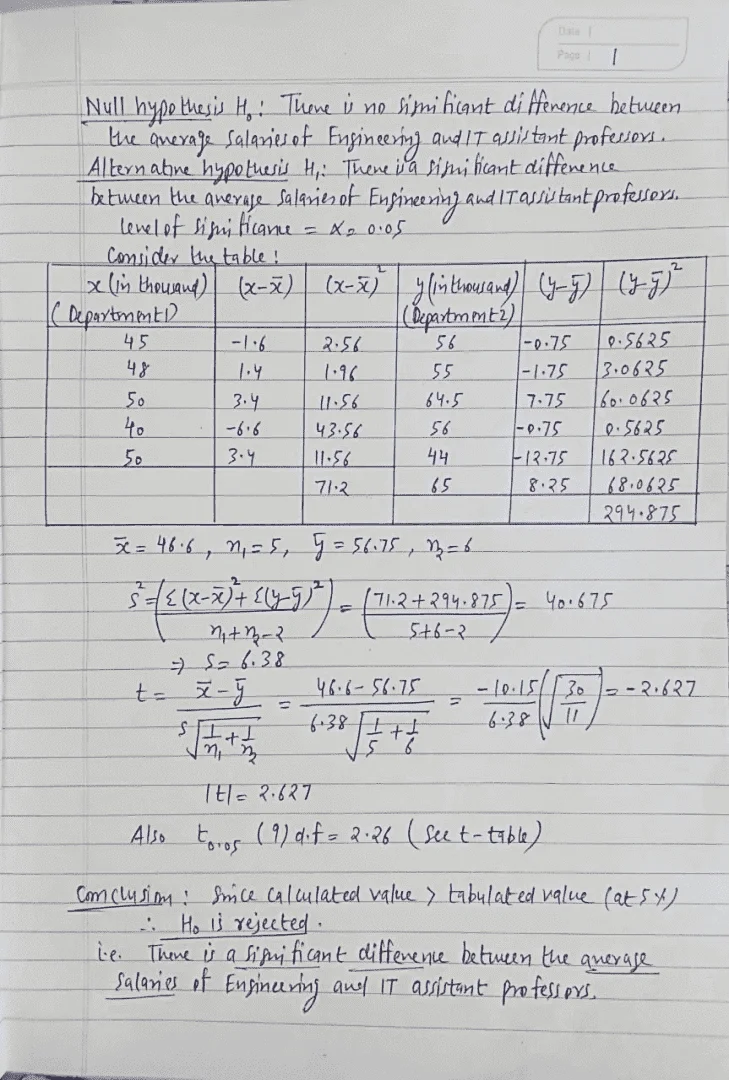 Date
Page 1
Null hypothesis H₀: There is no significant difference between
the average salaries of Engineering and IT assistant professors.
Alternative hypothesis H₁: There is a significant difference
between the average salaries of Engineering and IT assistant professors.
level of significance = α = 0.05
Consider the table:
x (in thousand) (Department 1) | (x-x̄) | (x-x̄)² | y (in thousand) (Department 2) | (y-ȳ) | (y-ȳ)²
45 | -1.6 | 2.56 | 56 | -0.75 | 0.5625
48 | 1.4 | 1.96 | 55 | -1.75 | 3.0625
50 | 3.4 | 11.56 | 64.5 | 7.75 | 60.0625
40 | -6.6 | 43.56 | 56 | -0.75 | 0.5625
50 | 3.4 | 11.56 | 44 | -12.75 | 162.5625
71.2 | 65 | 8.25 | 68.0625
294.875
x̄ = 46.6, n₁ = 5, ȳ = 56.75, n₂ = 6
s² = (Σ(x-x̄)² + Σ(y-ȳ)² / n₁+n₂-2) = (71.2 + 294.875 / 5+6-2) = 40.675
⇒ S = 6.38
t = x̄-ȳ / s√(1/n₁ + 1/n₂) = 46.6-56.75 / 6.38√(1/5 + 1/6) = -10.15/6.38 (√(30/11)) = -2.627
|t| = 2.627
Also t₀.₀₅ (9) d.f = 2.26 (See t-table)
Conclusion: Since calculated value > tabulated value (at 5%)
∴ H₀ is rejected.
i.e. There is a significant difference between the average
salaries of Engineering and IT assistant professors.